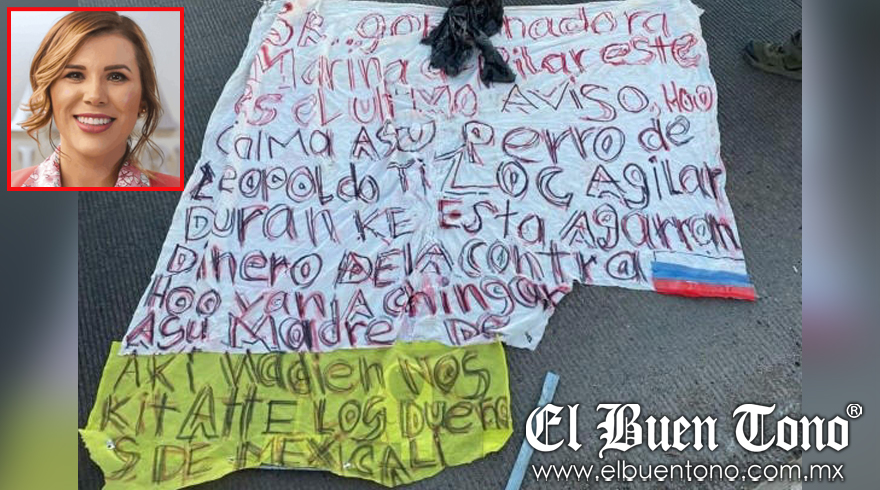 SR..gobernadora
Marina de Pilar este
es el Ultimo AViSO, HOO
Calma ASU Perro de
LEOPOLDO TiZLOC AgilAr
DURAN KE EStA AgArrAn
DiNERO DE LA CONtrA
HOO VAN A chingAr
ASU MAdRE DE
AKi NAdien NOS
KitAHE LOS DUEÑO
S DE MEXiCALi
El Buen Tono®
www.elbuentono.com.mx